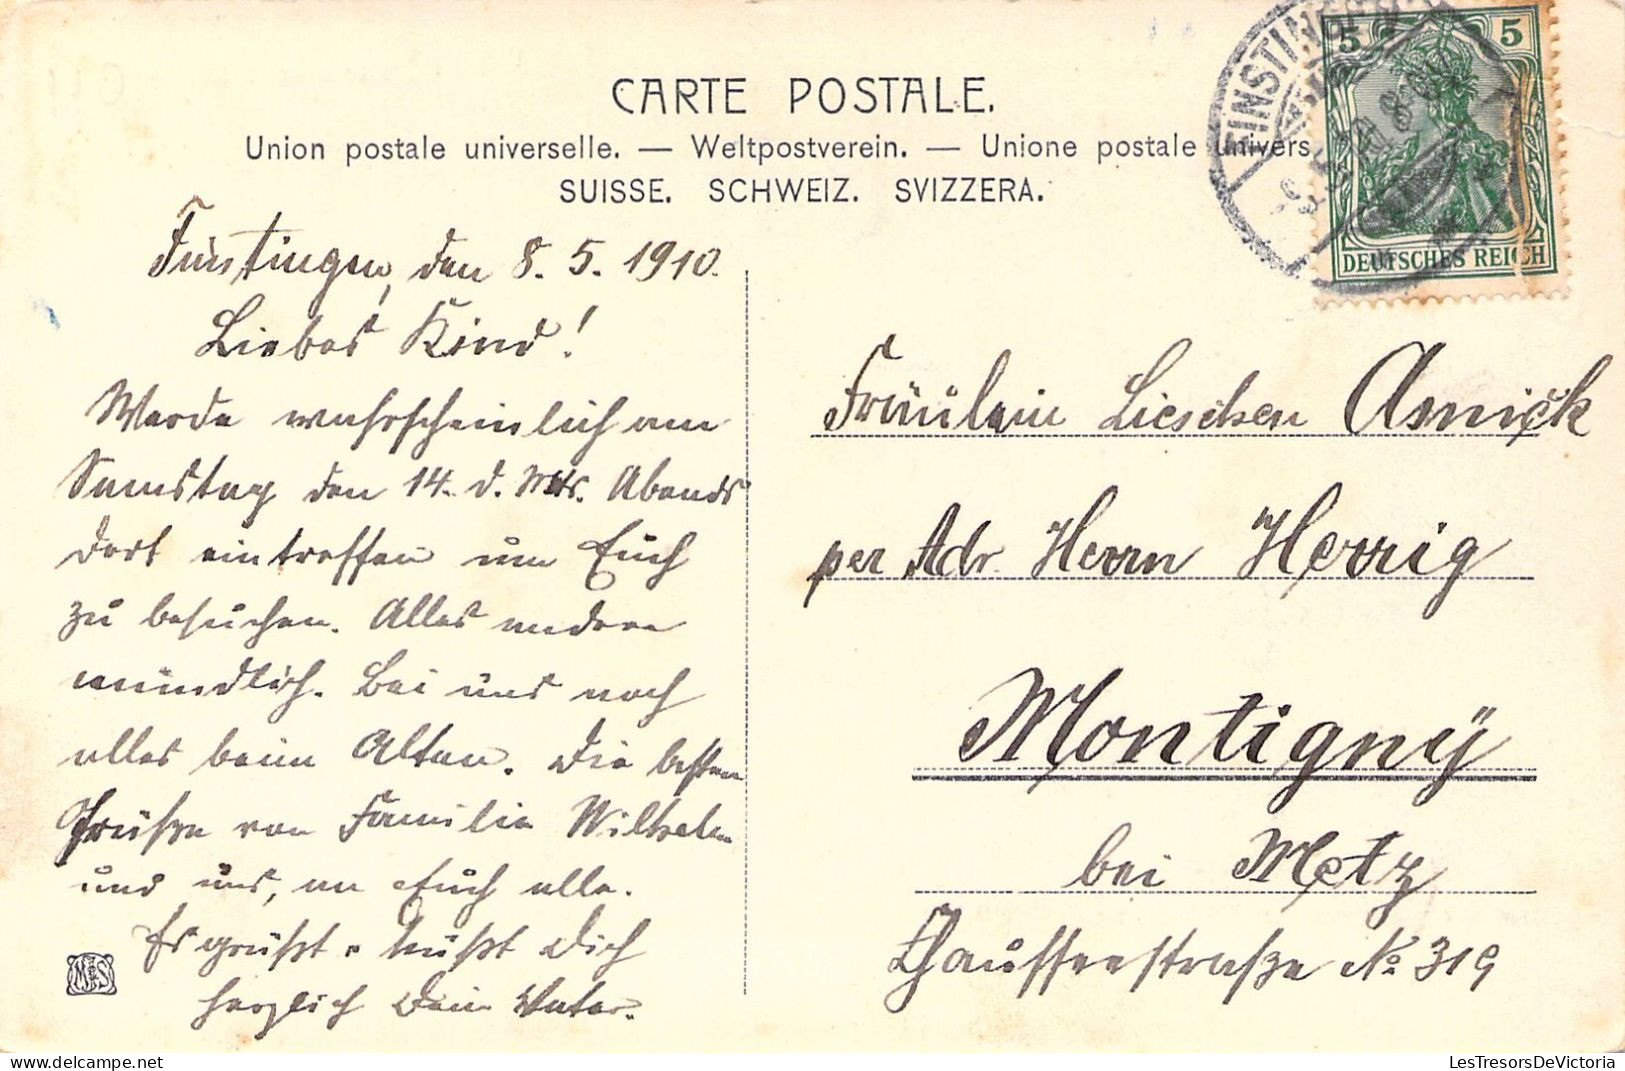 CARTE POSTALE.
Union postale universelle. — Weltpostverein. — Unione postale univers
SUISSE. SCHWEIZ. SVIZZERA.
FINSTINGEN
5 5
DEUTSCHES REICH
Finstingen, den 8. 5. 1910.
Liebes Kind!
Werde wahrscheinlich am
Samstag den 14. d. Mts. Abends
dort eintreffen um Euch
zu besuchen. Alles andere
mündlich. Bei uns noch
alles beim Alten. Die besten
Grüße von Familie Wilhelm
und uns, an Euch alle.
Es grüßt u küßt Dich
herzlich Dein Vater.
Fräulein Lieschen Asnick
per Adr. Herrn Herrig
Montigny
bei Metz
Chausseestraße No 319
LesTresorsDeVictoria